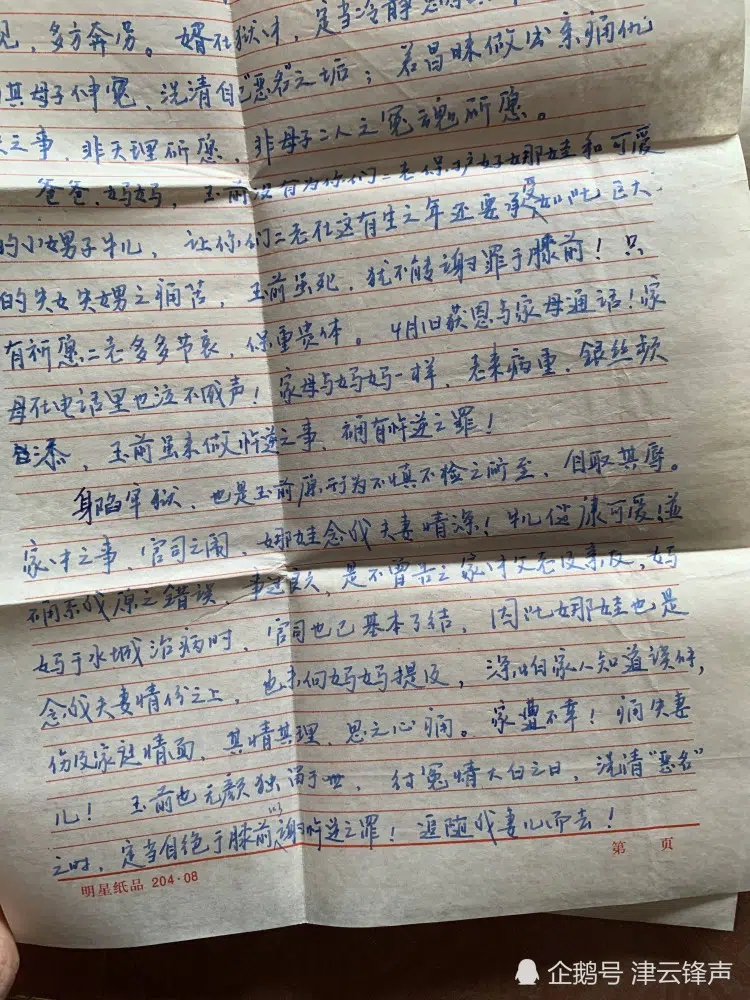 见，多方奔劳。婿在狱中，定当冷静
其母子伸冤，洗清自己"恶名"之垢；若昌昧做出亲痛仇
之事，非天理所愿，非母子二人之冤魂所愿。
爸爸、妈妈，玉前没有为你们二老保护好娜娃和可爱
的小甥子牛儿，让你们二老在这有生之年还要承受如此巨大
的失女失甥之痛苦，玉前虽死，犹不能谢罪于膝前！只
有祈愿二老多多节哀，保重贵体。4月1日获恩与家母通话！家
母在电话里也泣不成声！家母与妈妈一样，老来病重，银丝频
添，玉前虽未做忤逆之事，确有忤逆之罪！
身陷牢狱，也是玉前原行为不慎不检之所至，自取其辱。
家中之事，官司之闹，娜娃念我夫妻情深！牛儿健康可爱！并
确系我原之错误，事过良久，是不曾告之家中父老及亲友，妈
妈于水城治病时，官司也已基本了结，因此娜娃也是
念我夫妻情份之上，也未向妈妈提及，深怕家人知道误解，
伤及家庭情面，其情其理，思之心痛。家门不幸！痛失妻
儿！玉前也无颜独留于世，待冤情大白之日，洗清"恶名"
之时，定当自绝于膝前以谢忤逆之罪！追随我妻儿而去！
第 页
明星纸品 204·08
企鹅号 津云锋声